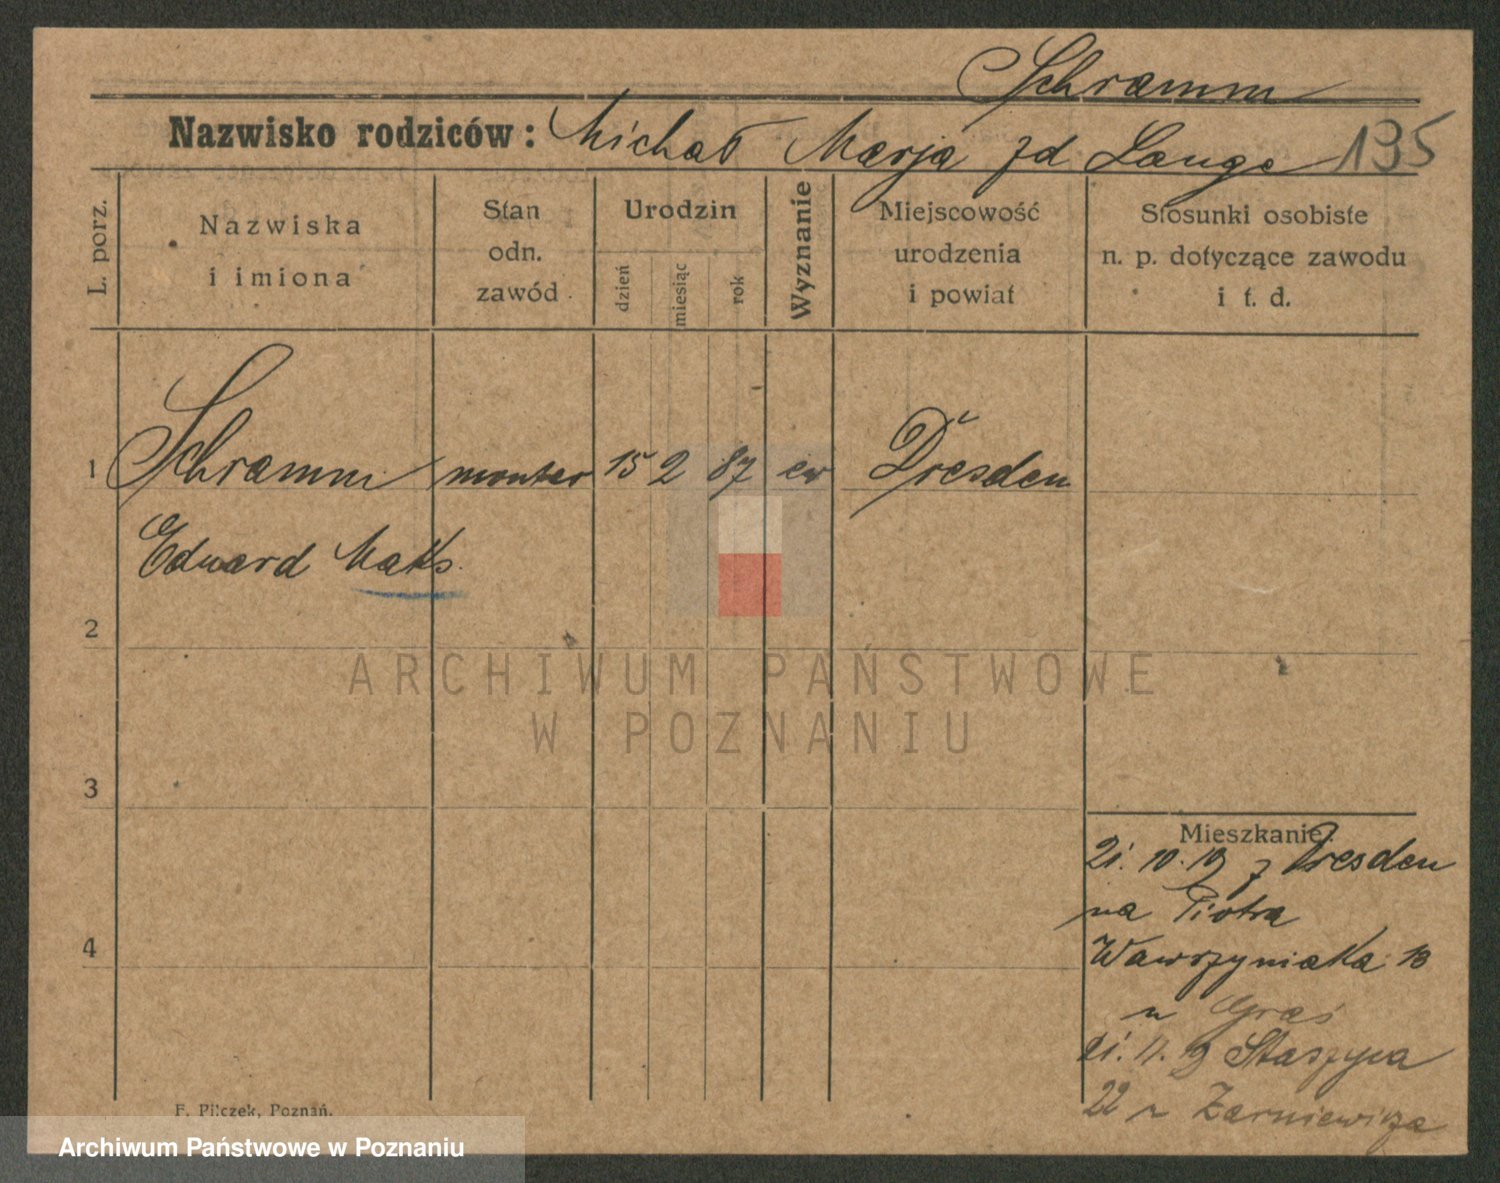 Schramm
Nazwisko rodziców: Michał Marja zd Lange 135
L. porz.
Nazwiska i imiona
Stan odn. zawód
Urodzin
dzień
miesiąc
rok
Wyznanie
Miejscowość urodzenia i powiat
Stosunki osobiste n. p. dotyczące zawodu i t. d.
1 Schramm monter 15 2 87 ew Dresden
Eduard Maks.
2
ARCHIWUM PAŃSTWOWE
W POZNANIU
3
Mieszkanie:
21. 10. 19 z Dresden
na Piotra
Wawrzyniaka 13
4
u
21. 11. 19 Staszyca
22 u Zarniewicza
F. Pilczek, Poznań.
Archiwum Państwowe w Poznaniu